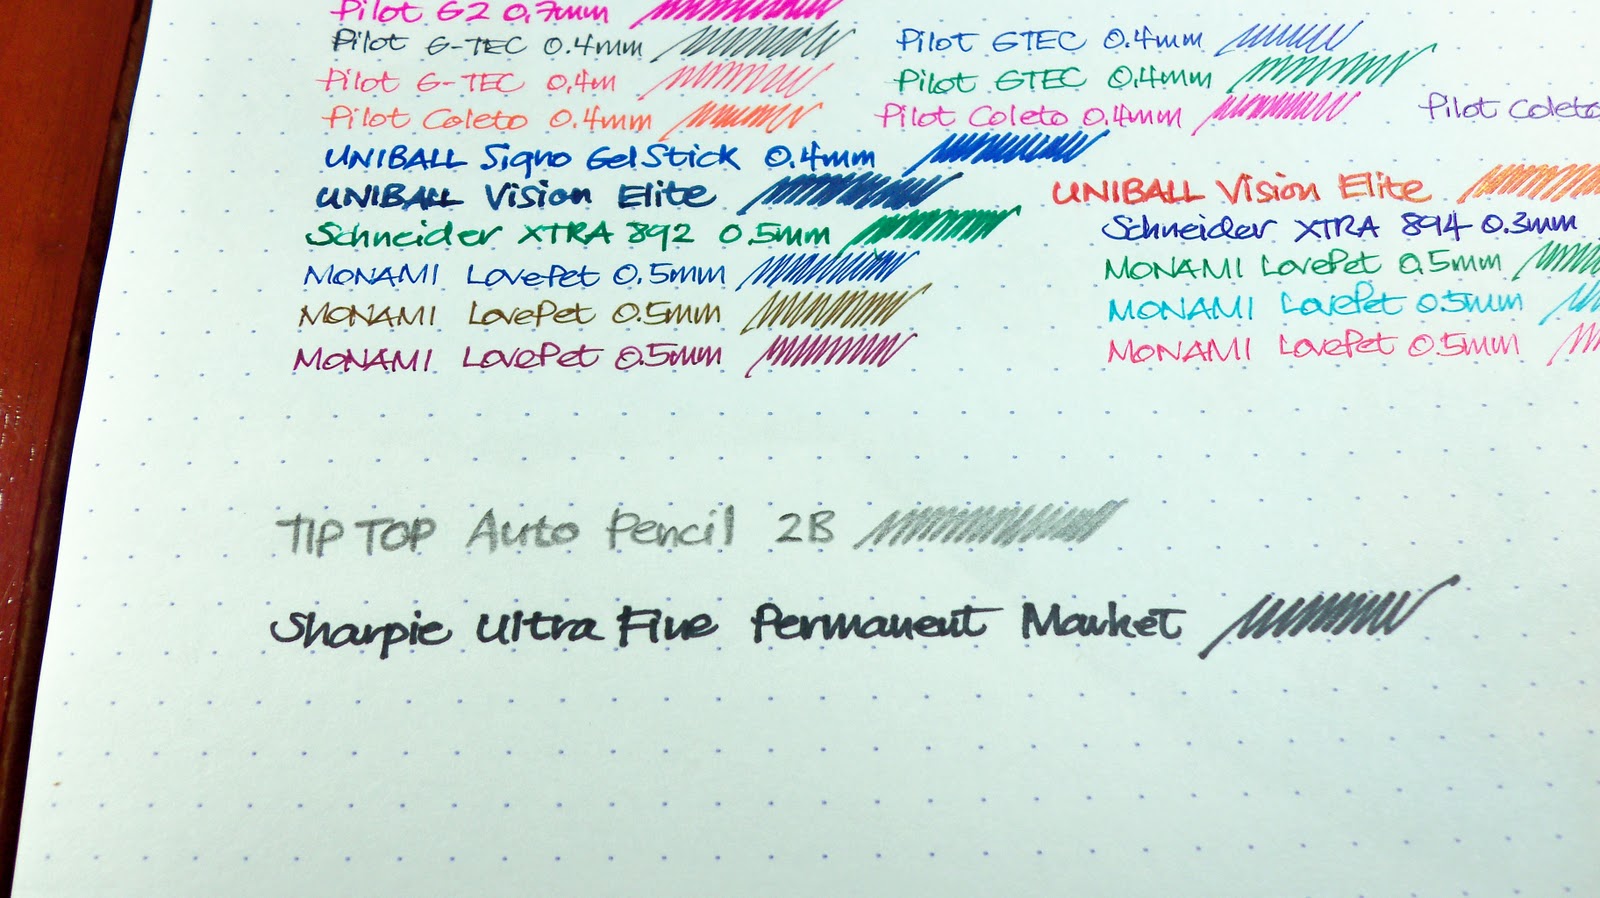 Pilot G2 0.7mm
Pilot G-TEC 0.4mm Pilot GTEC 0.4mm
Pilot G-TEC 0.4m Pilot GTEC 0.4mm
Pilot Coleto 0.4mm Pilot Coleto 0.4mm Pilot Coleto
UNIBALL Signo GelStick 0.4mm
UNIBALL Vision Elite UNIBALL Vision Elite
Schneider XTRA 892 0.5mm Schneider XTRA 894 0.3mm
MONAMI LovePet 0.5mm MONAMI LovePet 0.5mm
MONAMI LovePet 0.5mm MONAMI LovePet 0.5mm
MONAMI LovePet 0.5mm MONAMI LovePet 0.5mm
TIP TOP Auto Pencil 2B
Sharpie Ultra Fine Permanent Market